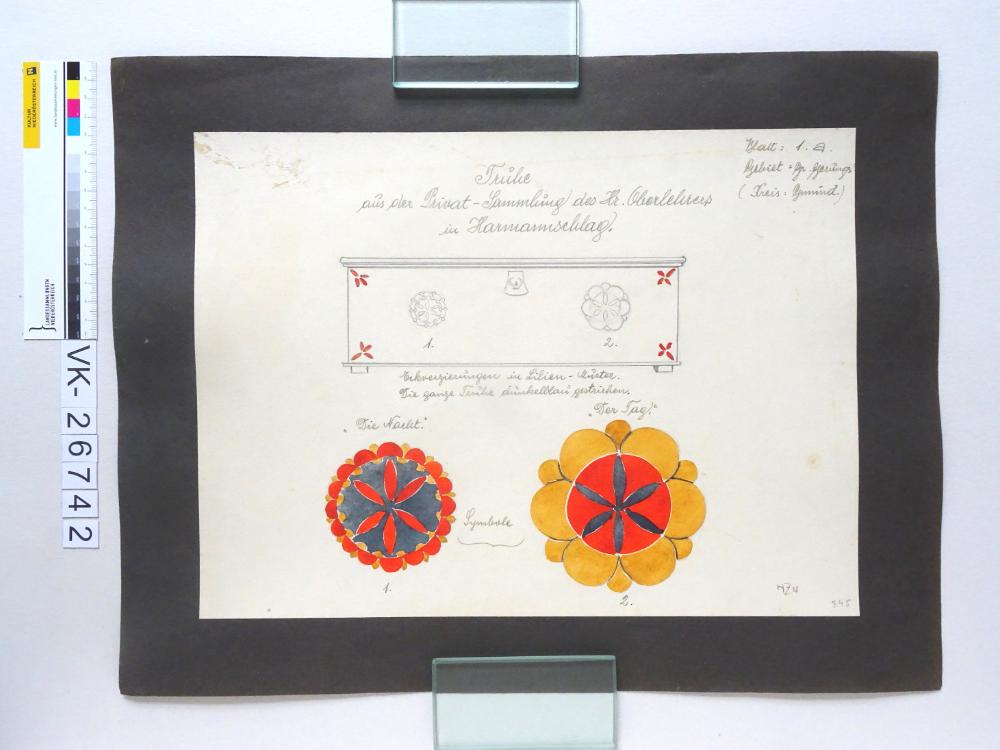 Blatt: 1. a.
Gebiet: Gr. Gerungs
(Kreis: Gmünd.)
Truhe
aus der Privat-Sammlung des Hr. Oberlehrers
in Harmannschlag.
1.
2.
Eckverzierungen in Lilien-Muster.
Die ganze Truhe dunkelblau gestrichen.
"Die Nacht."
"Der Tag."
Symbole
1.
2.
945
VK-26742
KULTUR
NIEDERÖSTERREICH
LANDESSAMMLUNGEN
NIEDERÖSTERREICH